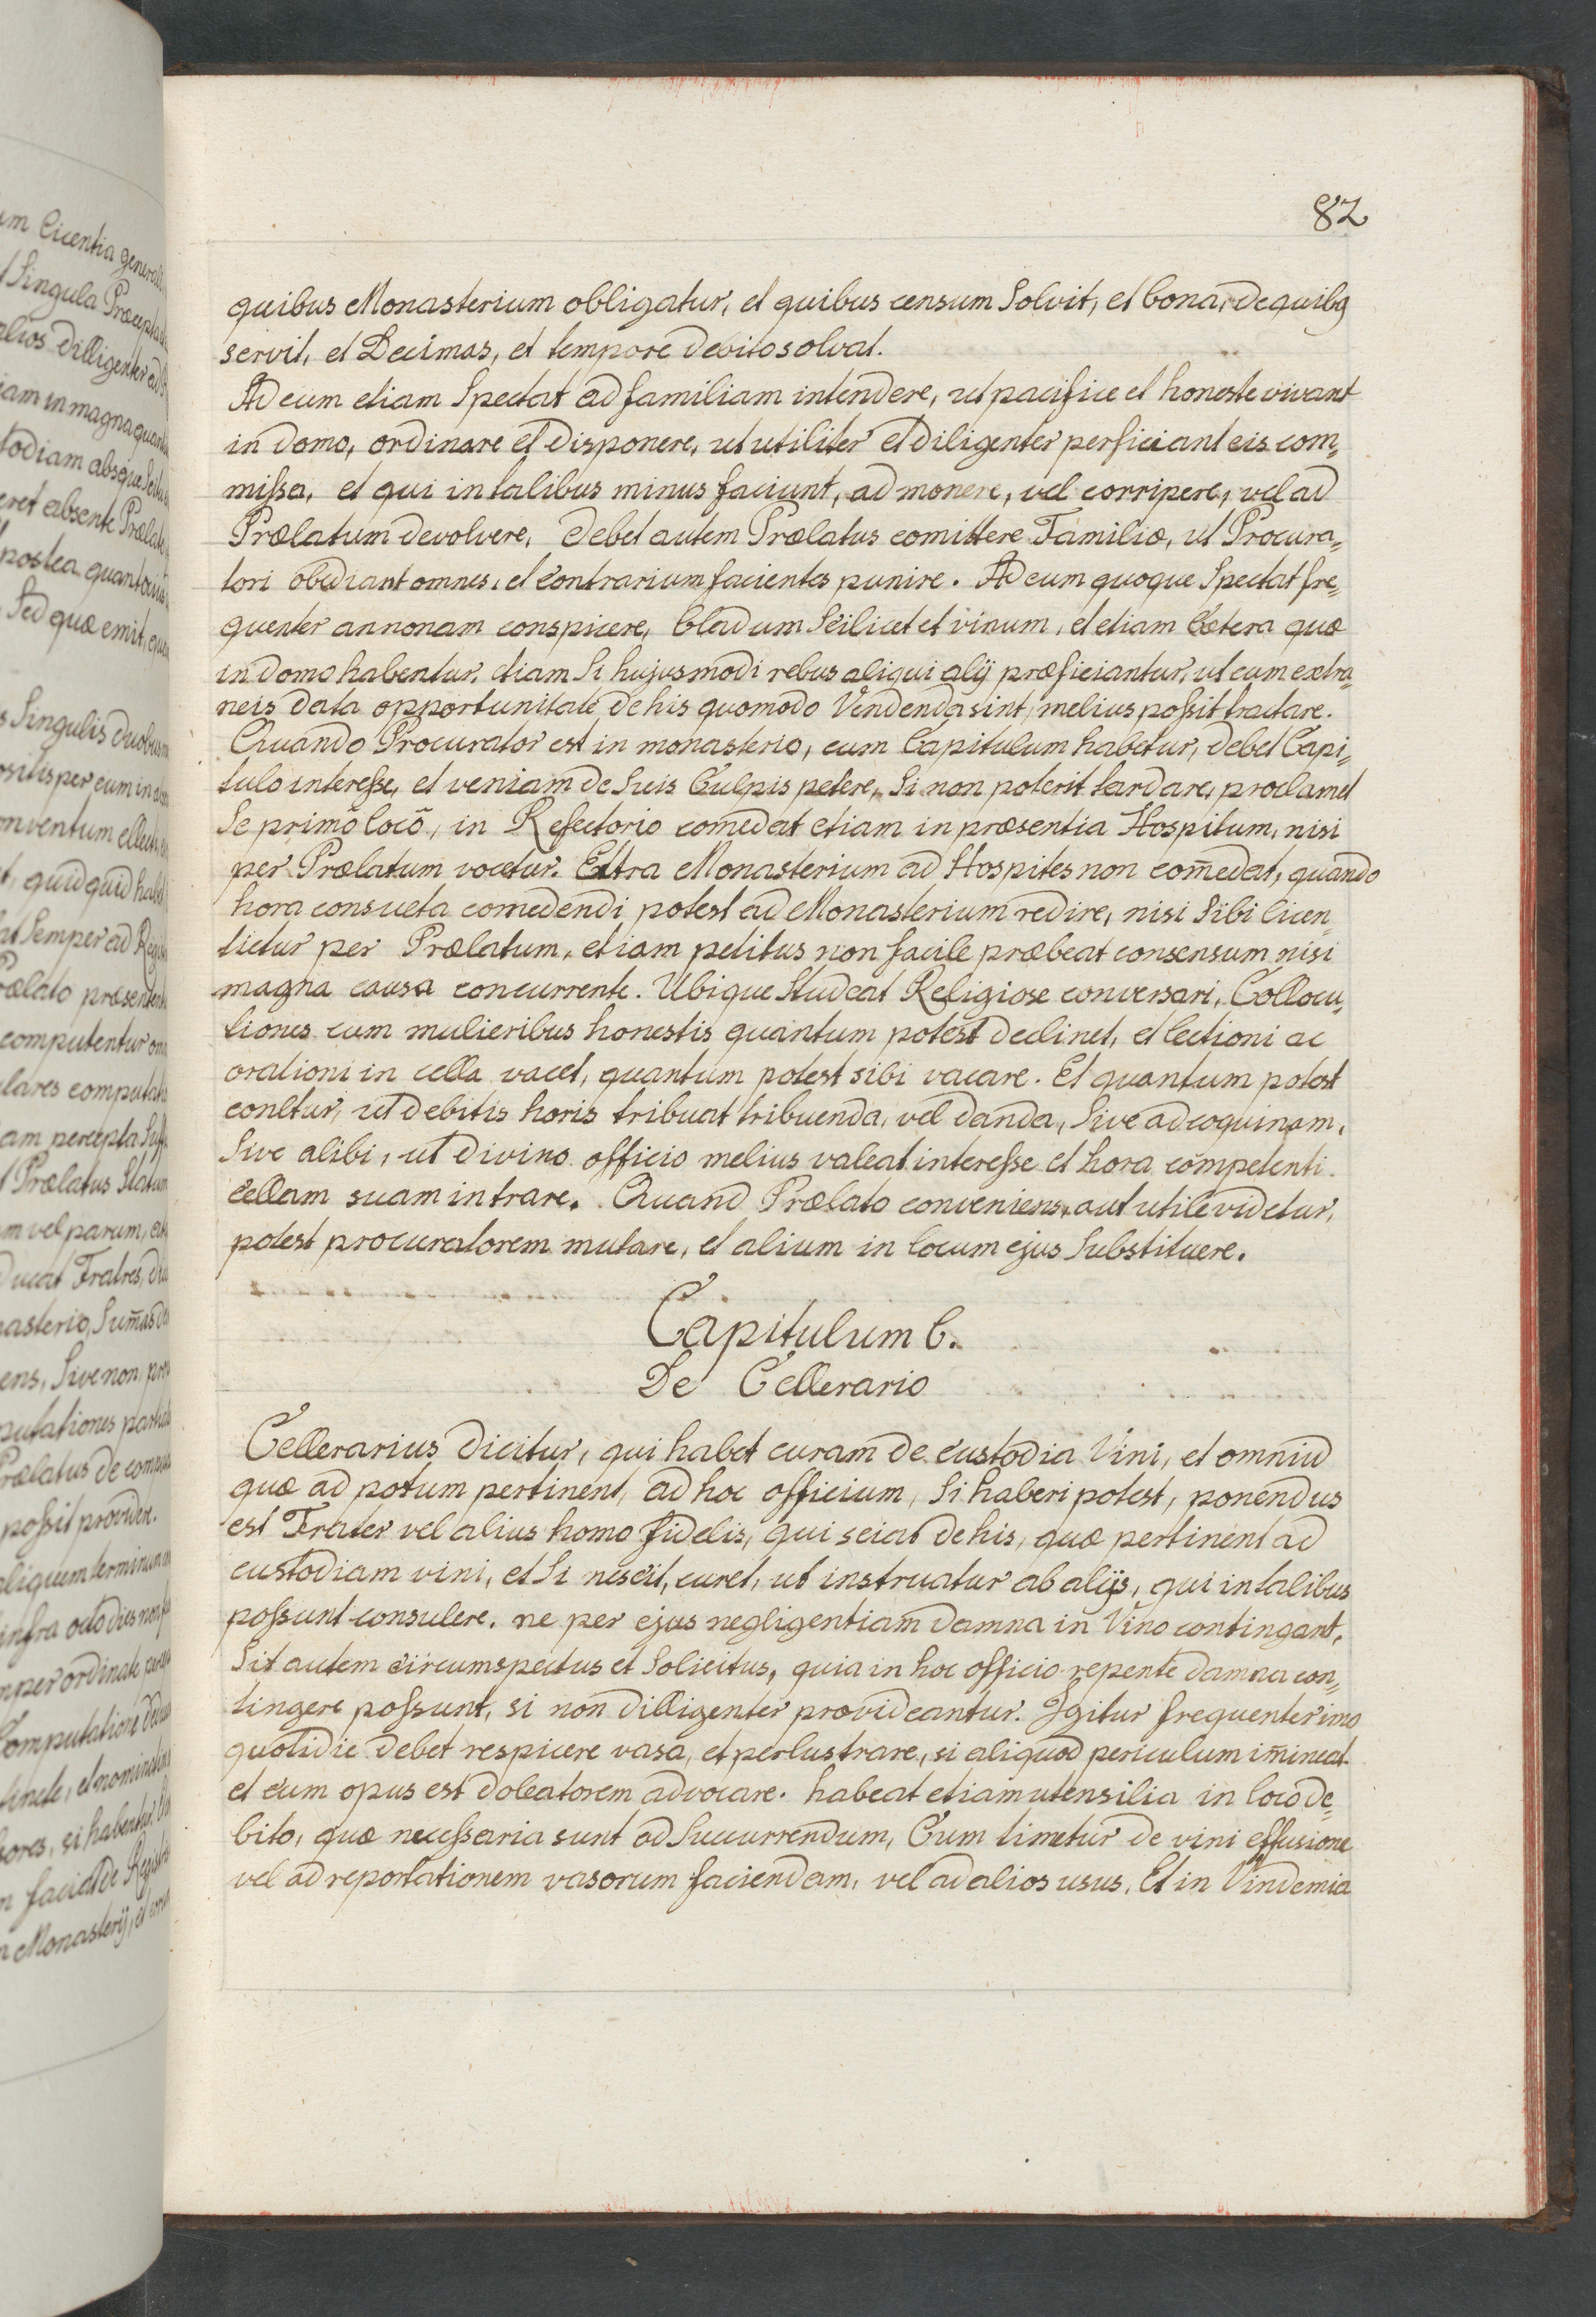 82
quibus Monasterium obligatur, et quibus censum Solvit, et bona, de quibꝫ
servit, et Decimas, et tempore debito solvat.
Ad eum etiam Spectat ad familiam intendere, ut pacifice et honeste vivant
in domo, ordinare et disponere, ut utiliter et diligenter perficiant eis com„
miſsa, et qui in talibus minus faciunt, admonere, vel corripere, vel ad
Prælatum devolvere, debet autem Prælatus comittere Familiæ, ut Procura„
tori obediant omnes, et contrarium facientes punire. Ad eum quoque Spectat fre„
quenter annonam conspicere, bladum Scilicet et vinum, et etiam Cætera quæ
in domo habentur, etiam Si hujusmodi rebus aliqui alij præficiantur, ut cum extra„
neis data opportunitate de his quomodo Vendenda sint, melius poſsit tractare.
Quando Procurator est in monasterio, cum Capitulum habetur, debet Capi„
tulo intereſse, et veniam de Suis Culpis petere, Si non poterit tardare, proclamet
Se primo loco, in Refectorio comedat etiam in præsentia Hospitum, nisi
per Prælatum vocetur. Extra Monasterium ad Hospites non com̄edat, quando
hora consueta comedendi potest ad Monasterium redire, nisi Sibi licen„
tietur per Prælatum, etiam petitus non facile præbeat consensum nisi
magna causa concurrente. Ubique Studeat Religiose conversari, Collocu„
tiones cum mulieribus honestis quantum potest declinet, et lectioni ac
orationi in cella vacet, quantum potest sibi vacare. Et quantum potest
conetur, ut debitis horis tribuat tribuenda, vel danda, Sive ad coquinam,
Sive alibi, ut divino officio melius valeat intereſse et hora competenti
cellam suam intrare. Quand Prælato conveniens, aut utile videtur,
potest procuratorem mutare, et alium in locum ejus Substituere.
Capitulum 6.
De Cellerario
Cellerarius dicitur, qui habet curam de custodia Vini, et omniū
quæ ad potum pertinent, ad hoc officium, Si haberi potest, ponendus
est Frater vel alius homo fidelis, qui sciat de his, quæ pertinent ad
custodiam vini, et Si nescit, curet, ut instruatur ab alijs, qui in talibus
poſsunt consulere, ne per ejus negligentiam damna in Vino contingant.
Sit autem circumspectus et Solicitus, quia in hoc officio repente damna con„
tingere poſsunt, si non dilligenter provideantur. Igitur frequenter imo
quotidie debet respicere vasa, et perlustrare, si aliquod periculum im̄ineat
et cum opus est doleatorem advocare. habeat etiam utensilia in loco de„
bito, quæ neceſsaria sunt ad Succurrendum, Cum timetur de vini effusione
vel ad reportationem vasorum faciendam, vel ad alios usus. Et in Vindemia